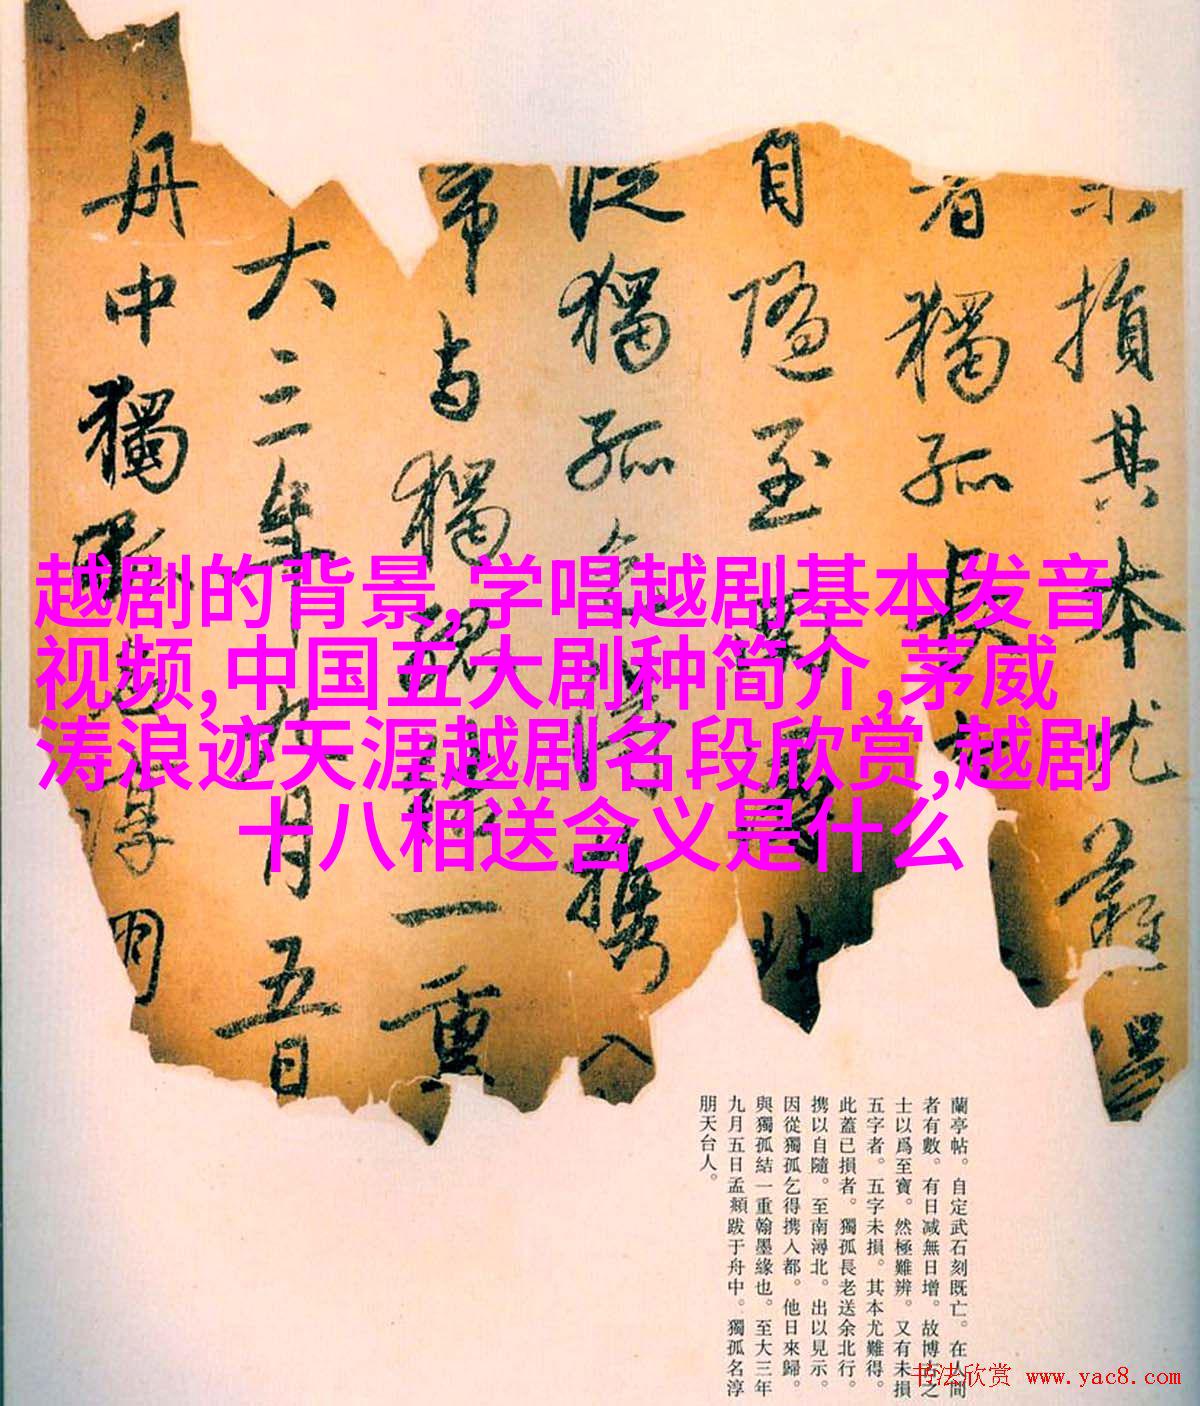 越剧的背景,学唱越剧基本发音
视频,中国五大剧种简介,茅威
涛浪迹天涯越剧名段欣赏,越剧
十八相送含义是什么
損其本尤難得
者獨孤長
自隨至
獨孤
與獨
一重
大三年九月五日
舟中獨
淳朋
蘭亭帖。自定武石刻既亡。在人間
者有數。有日減無日增。故博古之
士以爲至寶。然極難辨。又有未損
五字者。五字未損。其本尤難得。
此蓋已損者。獨孤長老送余北行。
携以自隨。至南潯北。出以見示。
因從獨孤乞得携入都。他日來歸。
與獨孤結一重翰墨緣也。至大三年
九月五日孟頫跋于舟中。獨孤名淳
朋天台人。
书法欣赏 www.yac8.com